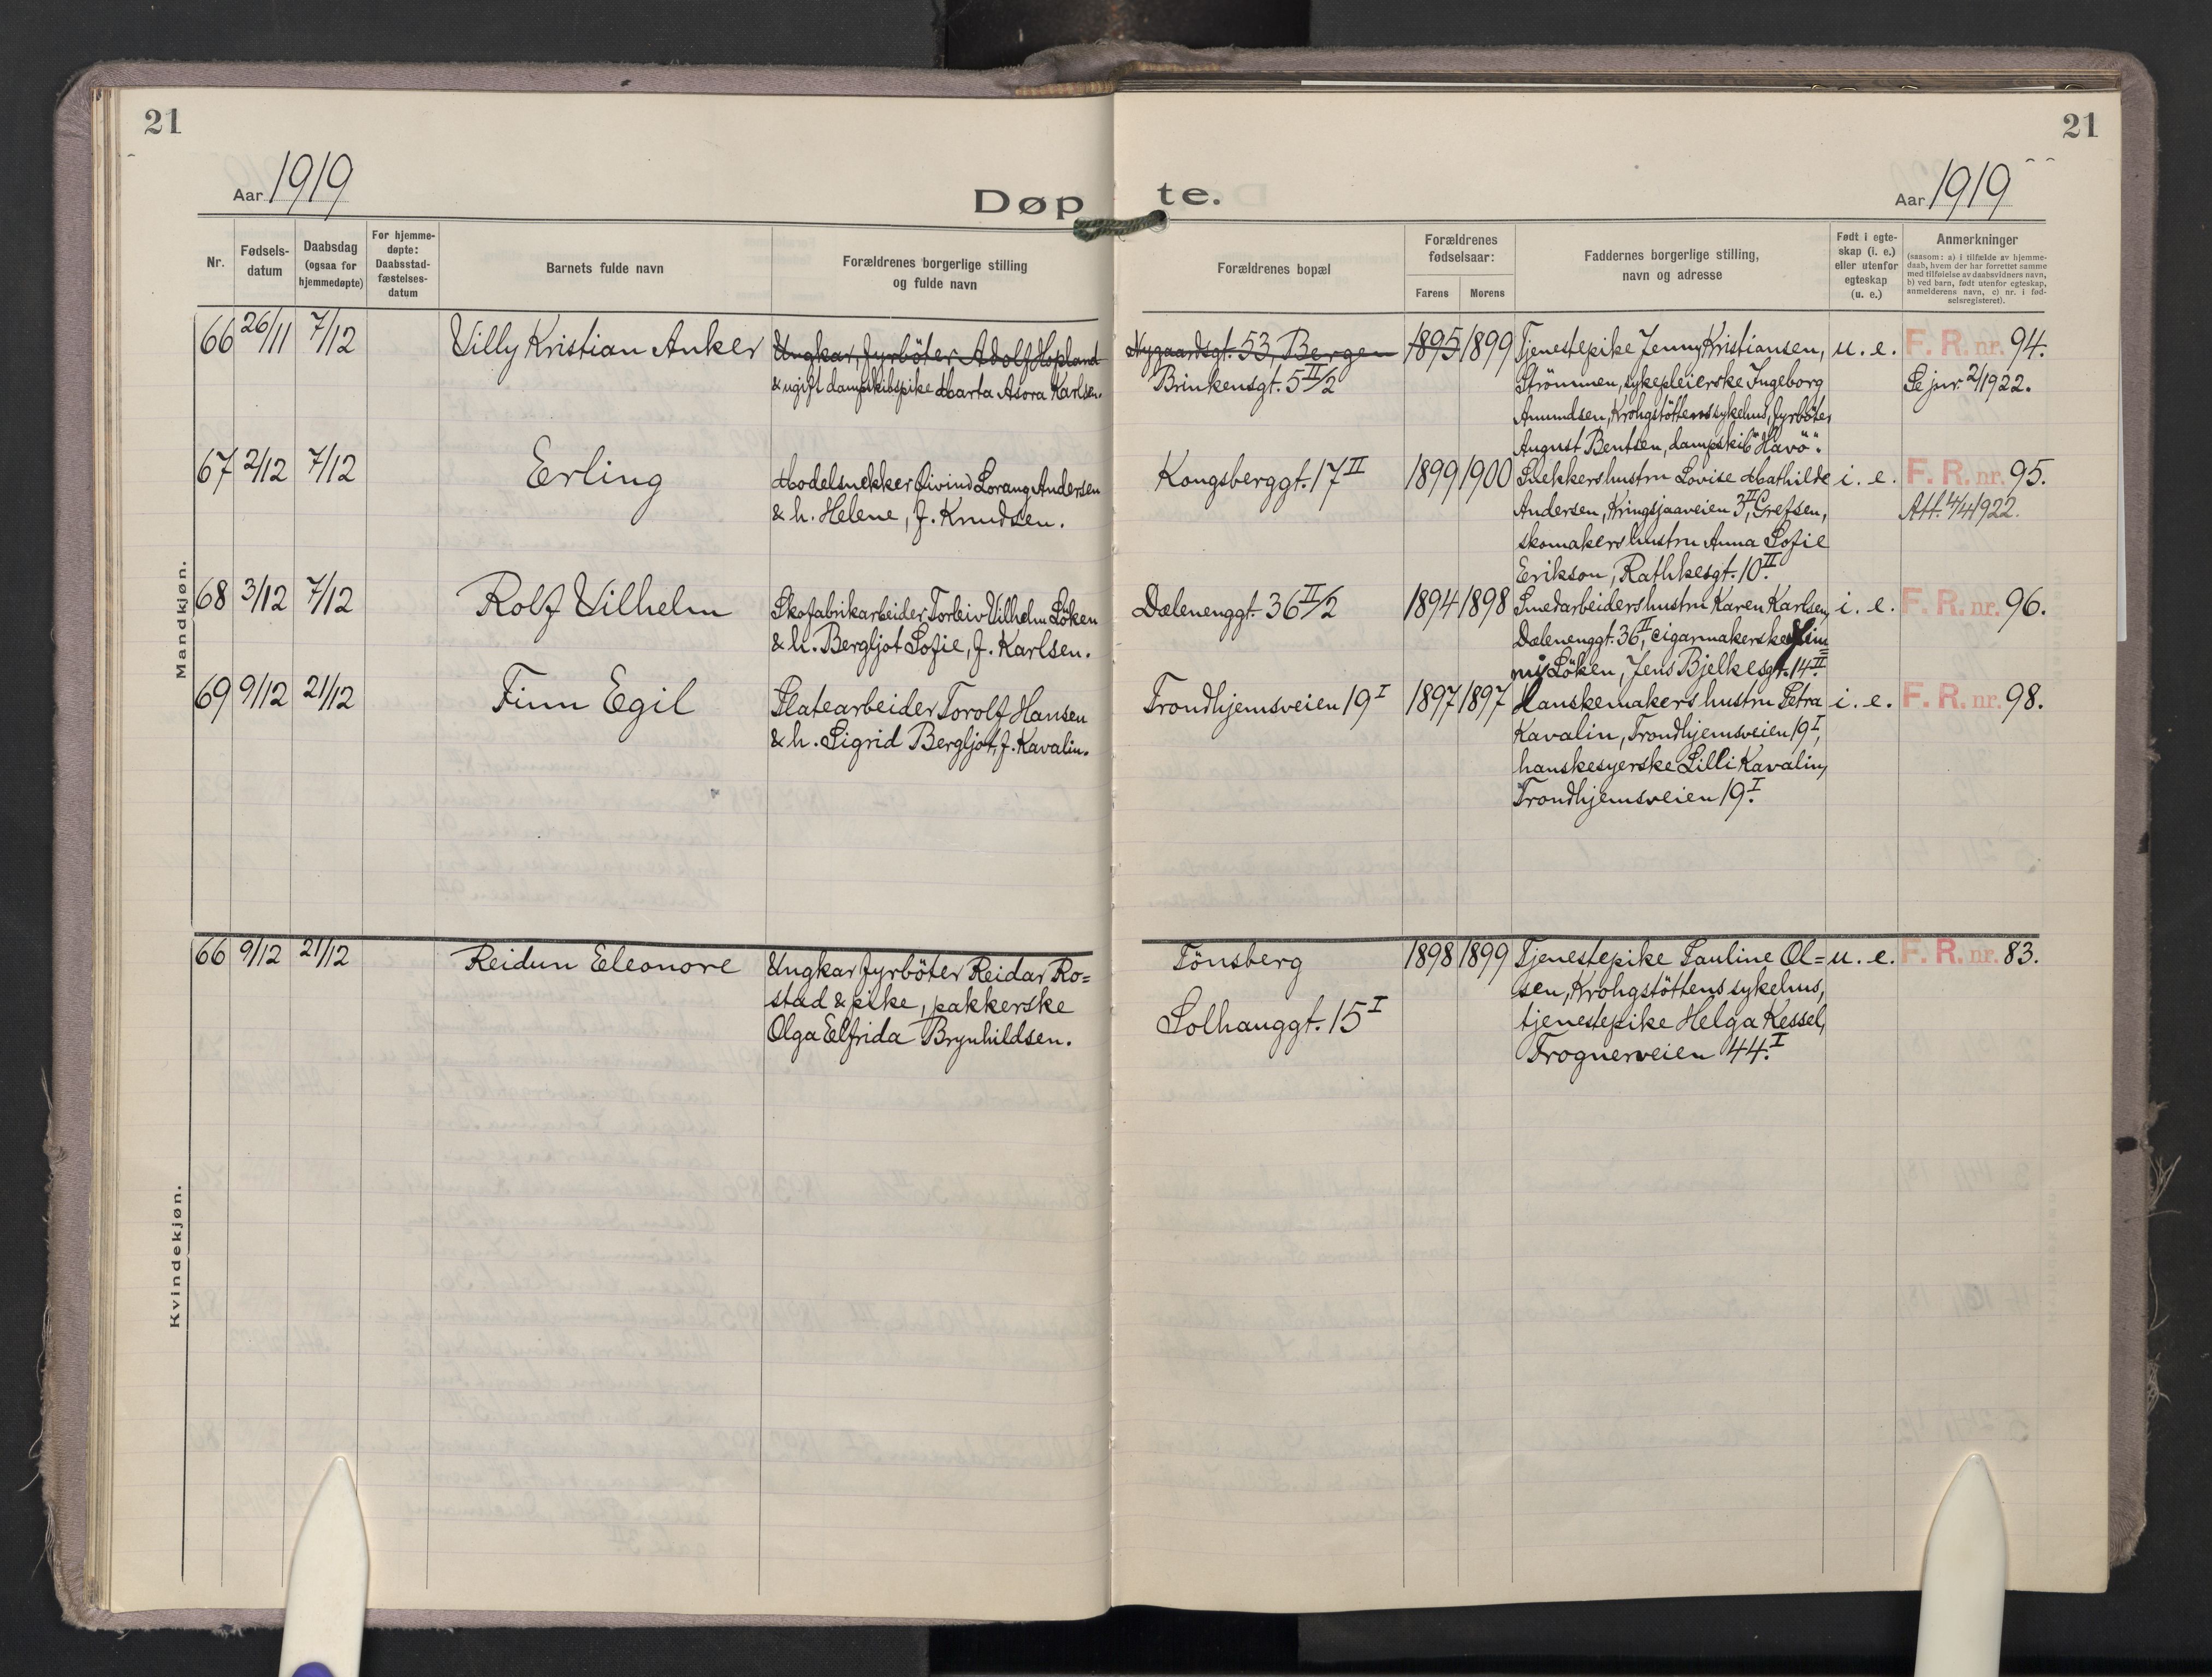 21
21
Aar 1919
Døpte.
Aar 1919
Nr.
Fødsels-
datum
Daabsdag
(ogsaa for
hjemmedøpte)
For hjemme-
døpte:
Daabsstad-
fæstelses-
datum
Barnets fulde navn
Forældrenes borgerlige stilling
og fulde navn
Forældrenes bopæl
Forældrenes
fødselsaar:
Farens
Morens
Faddernes borgerlige stilling,
navn og adresse
Født i egte-
skap (i. e.)
eller utenfor
egteskap
(u. e.)
Anmerkninger
(saasom: a) i tilfælde av hjemme-
daab, hvem der har forrettet samme
med tilføielse av daabsvidners navn,
b) ved barn, født utenfor egteskap,
anmelderens navn, c) nr. i fød-
selsregisteret).
Mandkjøn.
66 26/11 7/12 Villy Kristian Anker
Ungkar, fyrböter Adolf Hopland
& ugift dampskibspike Marta Asora Karlsen.
Nygaardsgt. 53, Bergen
Brinkensgt. 5 II/2
1895 1899
Tjenestepike Jenny Kristiansen,
Strömmen, sykepleierske Ingeborg
Amundsen, Krohgstöttens sykehus, fyrböter
August Bentsen, dampskib "Havö".
u. e.
F. R. nr. 94.
Se jnr. 2/1922.
67 2/12 7/12 Erling
Modelsnekker Öivind Lorang Andersen
& h. Helene, f. Knudsen.
Kongsberggt. 17 II
1899 1900
Snekkershustru Lovise Mathilde
Andersen, Kringsjaaveien 3 II, Grefsen,
skomakershustru Anna Sofie
Erikson, Rathkesgt. 10 II.
i. e.
F. R. nr. 95.
Att. 4/4 1922.
68 3/12 7/12 Rolf Vilhelm
Skofabrikarbeider Torleiv Vilhelm Löken
& h. Bergljot Sofie, f. Karlsen.
Dælenenggt. 36 II/2
1894 1898
Smedarbeidershustru Karen Karlsen,
Dælenenggt. 36 II, cigarmakerske
Löken, Jens Bjelkesgt. 14 II.
i. e.
F. R. nr. 96.
69 9/12 21/12 Finn Egil
Platearbeider Torolf Hansen
& h. Sigrid Bergljot, f. Kavalin.
Trondhjemsveien 19 I
1897 1897
Hanskemakershustru Petra
Kavalin, Trondhjemsveien 19 I,
hanskesyerske Lilli Kavalin,
Trondhjemsveien 19 I.
i. e.
F. R. nr. 98.
Kvindekjøn.
66 9/12 21/12 Reidun Eleonore
Ungkar fyrböter Reidar Ro=
stad & pike, pakkerske
Olga Elfrida Brynhildsen.
Tönsberg
Solhauggt. 15 I
1898 1899
Tjenestepike Pauline Ol=
sen, Krohgstöttens sykehus,
tjenestepike Helga Kessel,
Frognerveien 44 I.
u. e.
F. R. nr. 83.